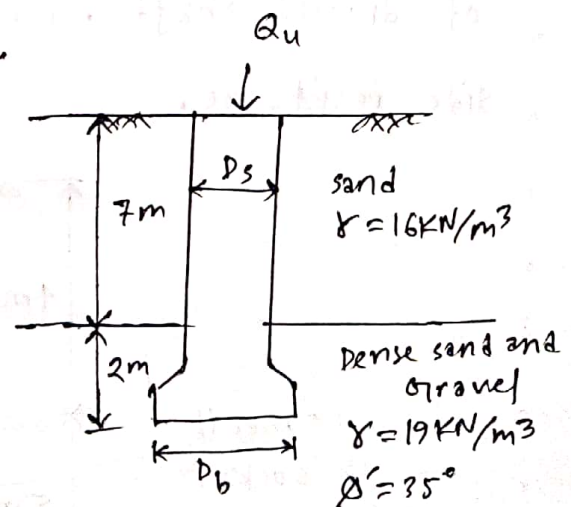 Qu
Ds
7m
sand
γ = 16KN/m³
2m
Dense sand and
Gravel
γ = 19KN/m³
Ø' = 35°
Db